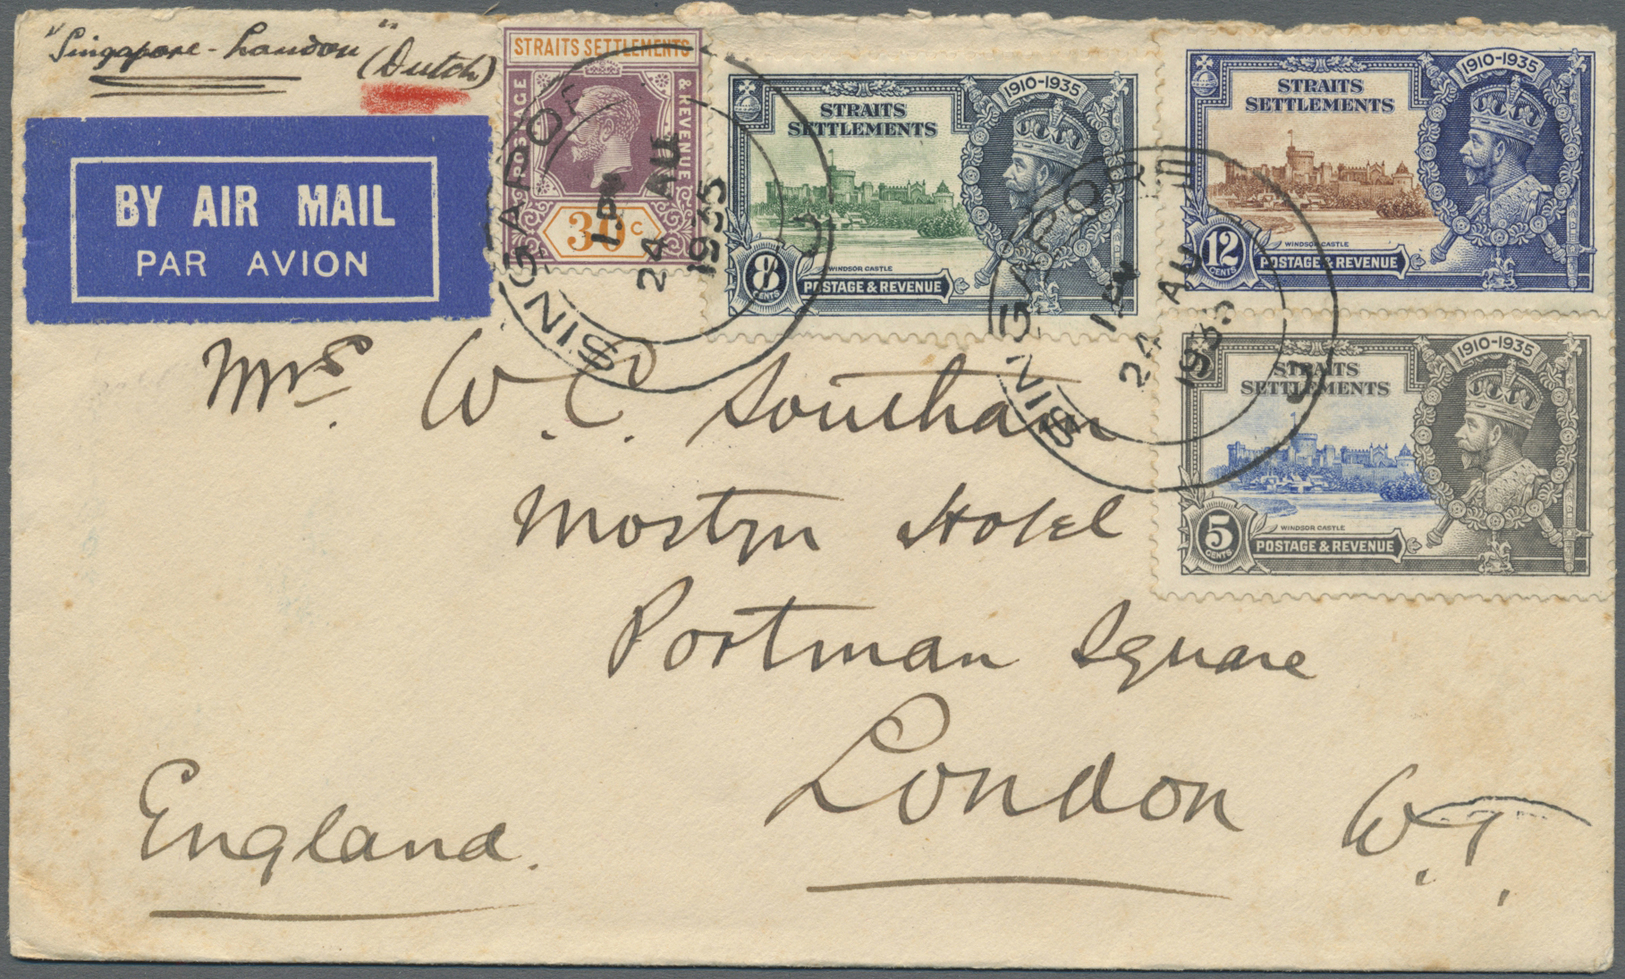 "Singapore - London" (Dutch)
BY AIR MAIL
PAR AVION
STRAITS SETTLEMENTS
POSTAGE & REVENUE
30 c
SINGAPORE
1.PM
24 AU
1935
1910-1935
STRAITS
SETTLEMENTS
WINDSOR CASTLE
8
CENTS
POSTAGE & REVENUE
1910-1935
STRAITS
SETTLEMENTS
WINDSOR CASTLE
12
CENTS
POSTAGE & REVENUE
SINGAPORE
1.PM
24 AU
1935
1910-1935
STRAITS
SETTLEMENTS
WINDSOR CASTLE
5
CENTS
POSTAGE & REVENUE
Mrs. W. C. Southam
Mostyn Hotel
Portman Square
London W.1.
England.